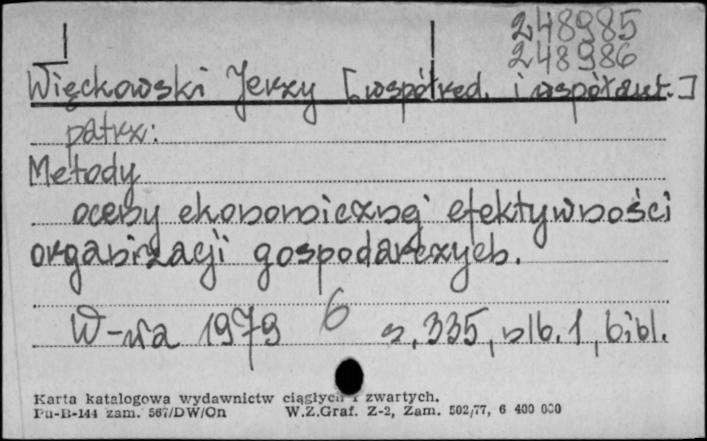 248985
248986
Więckowski Jerzy [współred. i współaut.]
patrz:
Metody
oceny ekonomicznej efektywności
organizacji gospodarczych.
W-wa 1979 6 s. 335, nlb. 1, bibl.
Karta katalogowa wydawnictw ciągłych i zwartych.
Pu-B-144 zam. 567/DW/On W.Z.Graf. Z-2, Zam. 502/77, 6 400 000